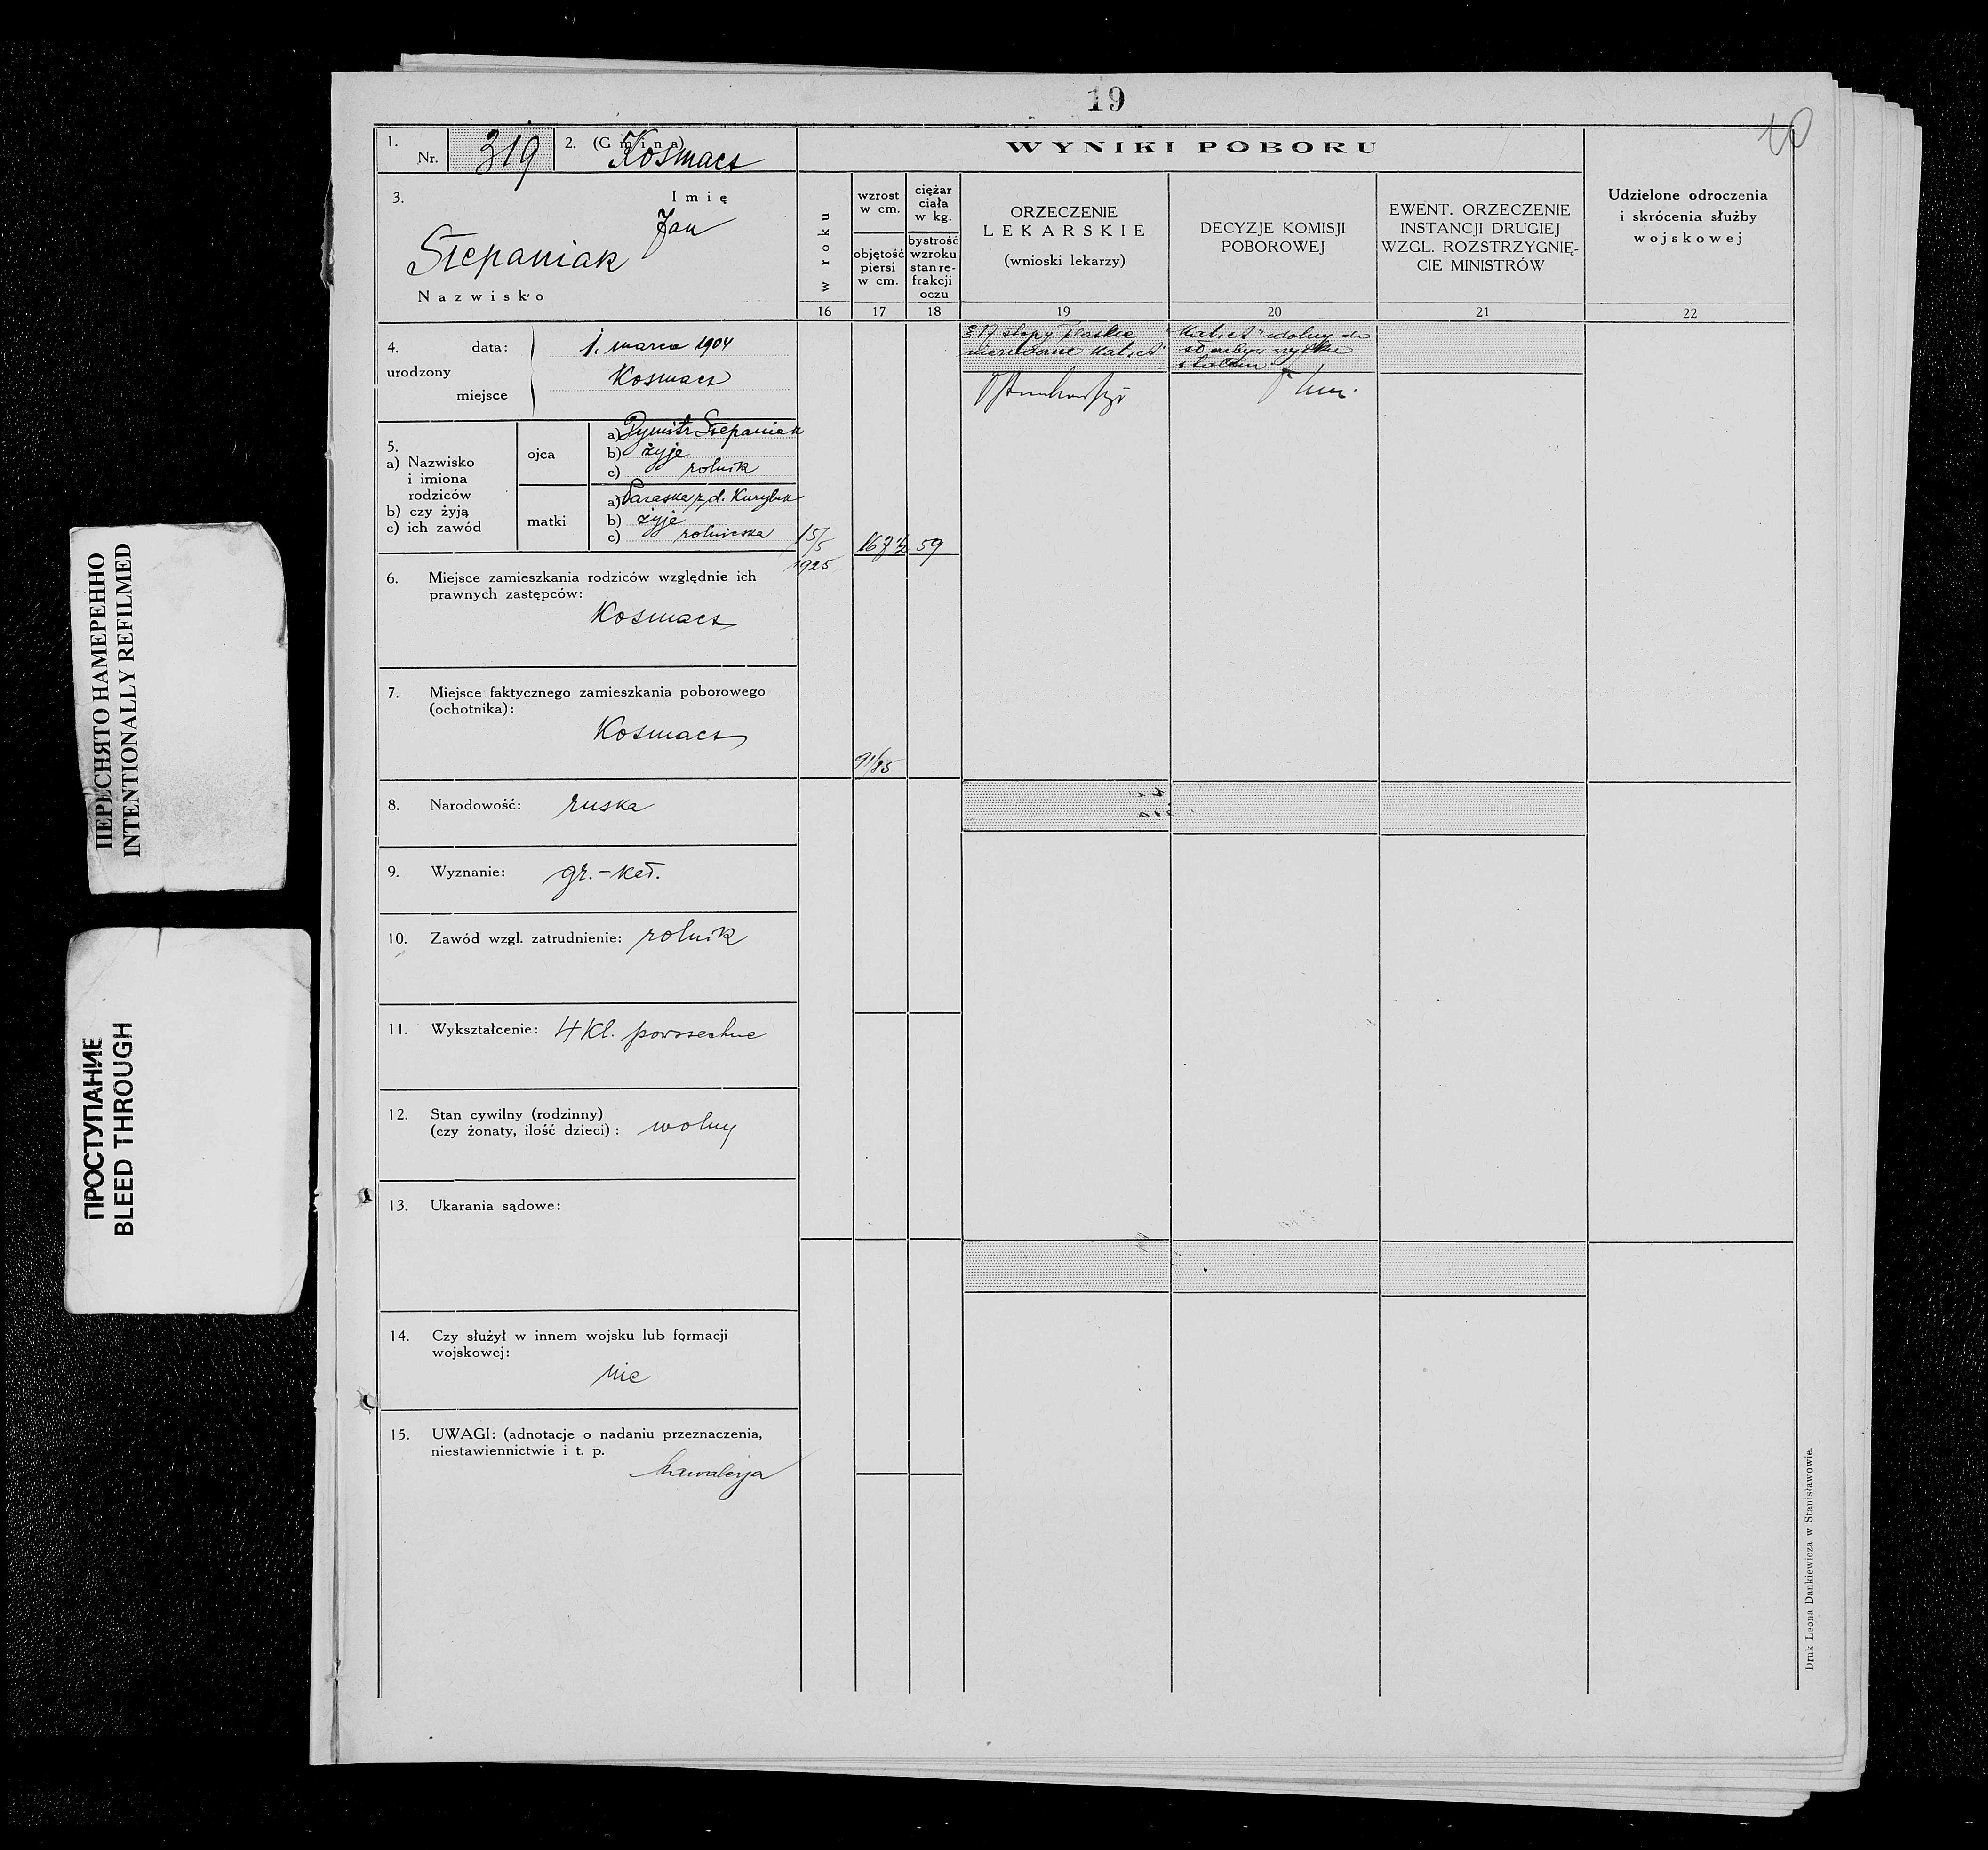 19
1. Nr. 319
2. (Gmina) Kosmacz
3. Imię
Jan
Stepaniak
Nazwisko
4. urodzony
data: 1. marca 1904
miejsce Kosmacz
5.
a) Nazwisko
i imiona
rodziców
b) czy żyją
c) ich zawód
ojca
a) Dymitr Stepaniak
b) żyje
c) rolnik
matki
a) Paraska z d. Kuryluk
b) żyje
c) rolniczka
6. Miejsce zamieszkania rodziców względnie ich
prawnych zastępców:
Kosmacz
7. Miejsce faktycznego zamieszkania poborowego
(ochotnika):
Kosmacz
8. Narodowość: ruska
9. Wyznanie: gr.-kat.
10. Zawód wzgl. zatrudnienie: rolnik
11. Wykształcenie: 4 kl. powszechne
12. Stan cywilny (rodzinny)
(czy żonaty, ilość dzieci): wolny
13. Ukarania sądowe:
14. Czy służył w innem wojsku lub formacji
wojskowej:
nie
15. UWAGI: (adnotacje o nadaniu przeznaczenia,
niestawiennictwie i t. p.
kawalerja
WYNIKI POBORU
w roku
16
wzrost
w cm.
objętość
piersi
w cm.
17
ciężar
ciała
w kg.
bystrość
wzroku
stan re-
frakcji
oczu
18
ORZECZENIE
LEKARSKIE
(wnioski lekarzy)
19
DECYZJE KOMISJI
POBOROWEJ
20
EWENT. ORZECZENIE
INSTANCJI DRUGIEJ
WZGL. ROZSTRZYGNIĘ-
CIE MINISTRÓW
21
Udzielone odroczenia
i skrócenia służby
wojskowej
22
15/5
1925
167 ½
59
91/85
stopy płaskie
kat. A
kat. "A" zdolny do
Druk Leona Dankiewicza w Stanisławowie.
ПЕРЕСНЯТО НАМЕРЕННО
INTENTIONALLY REFILMED
ПРОСТУПАНИЕ
BLEED THROUGH